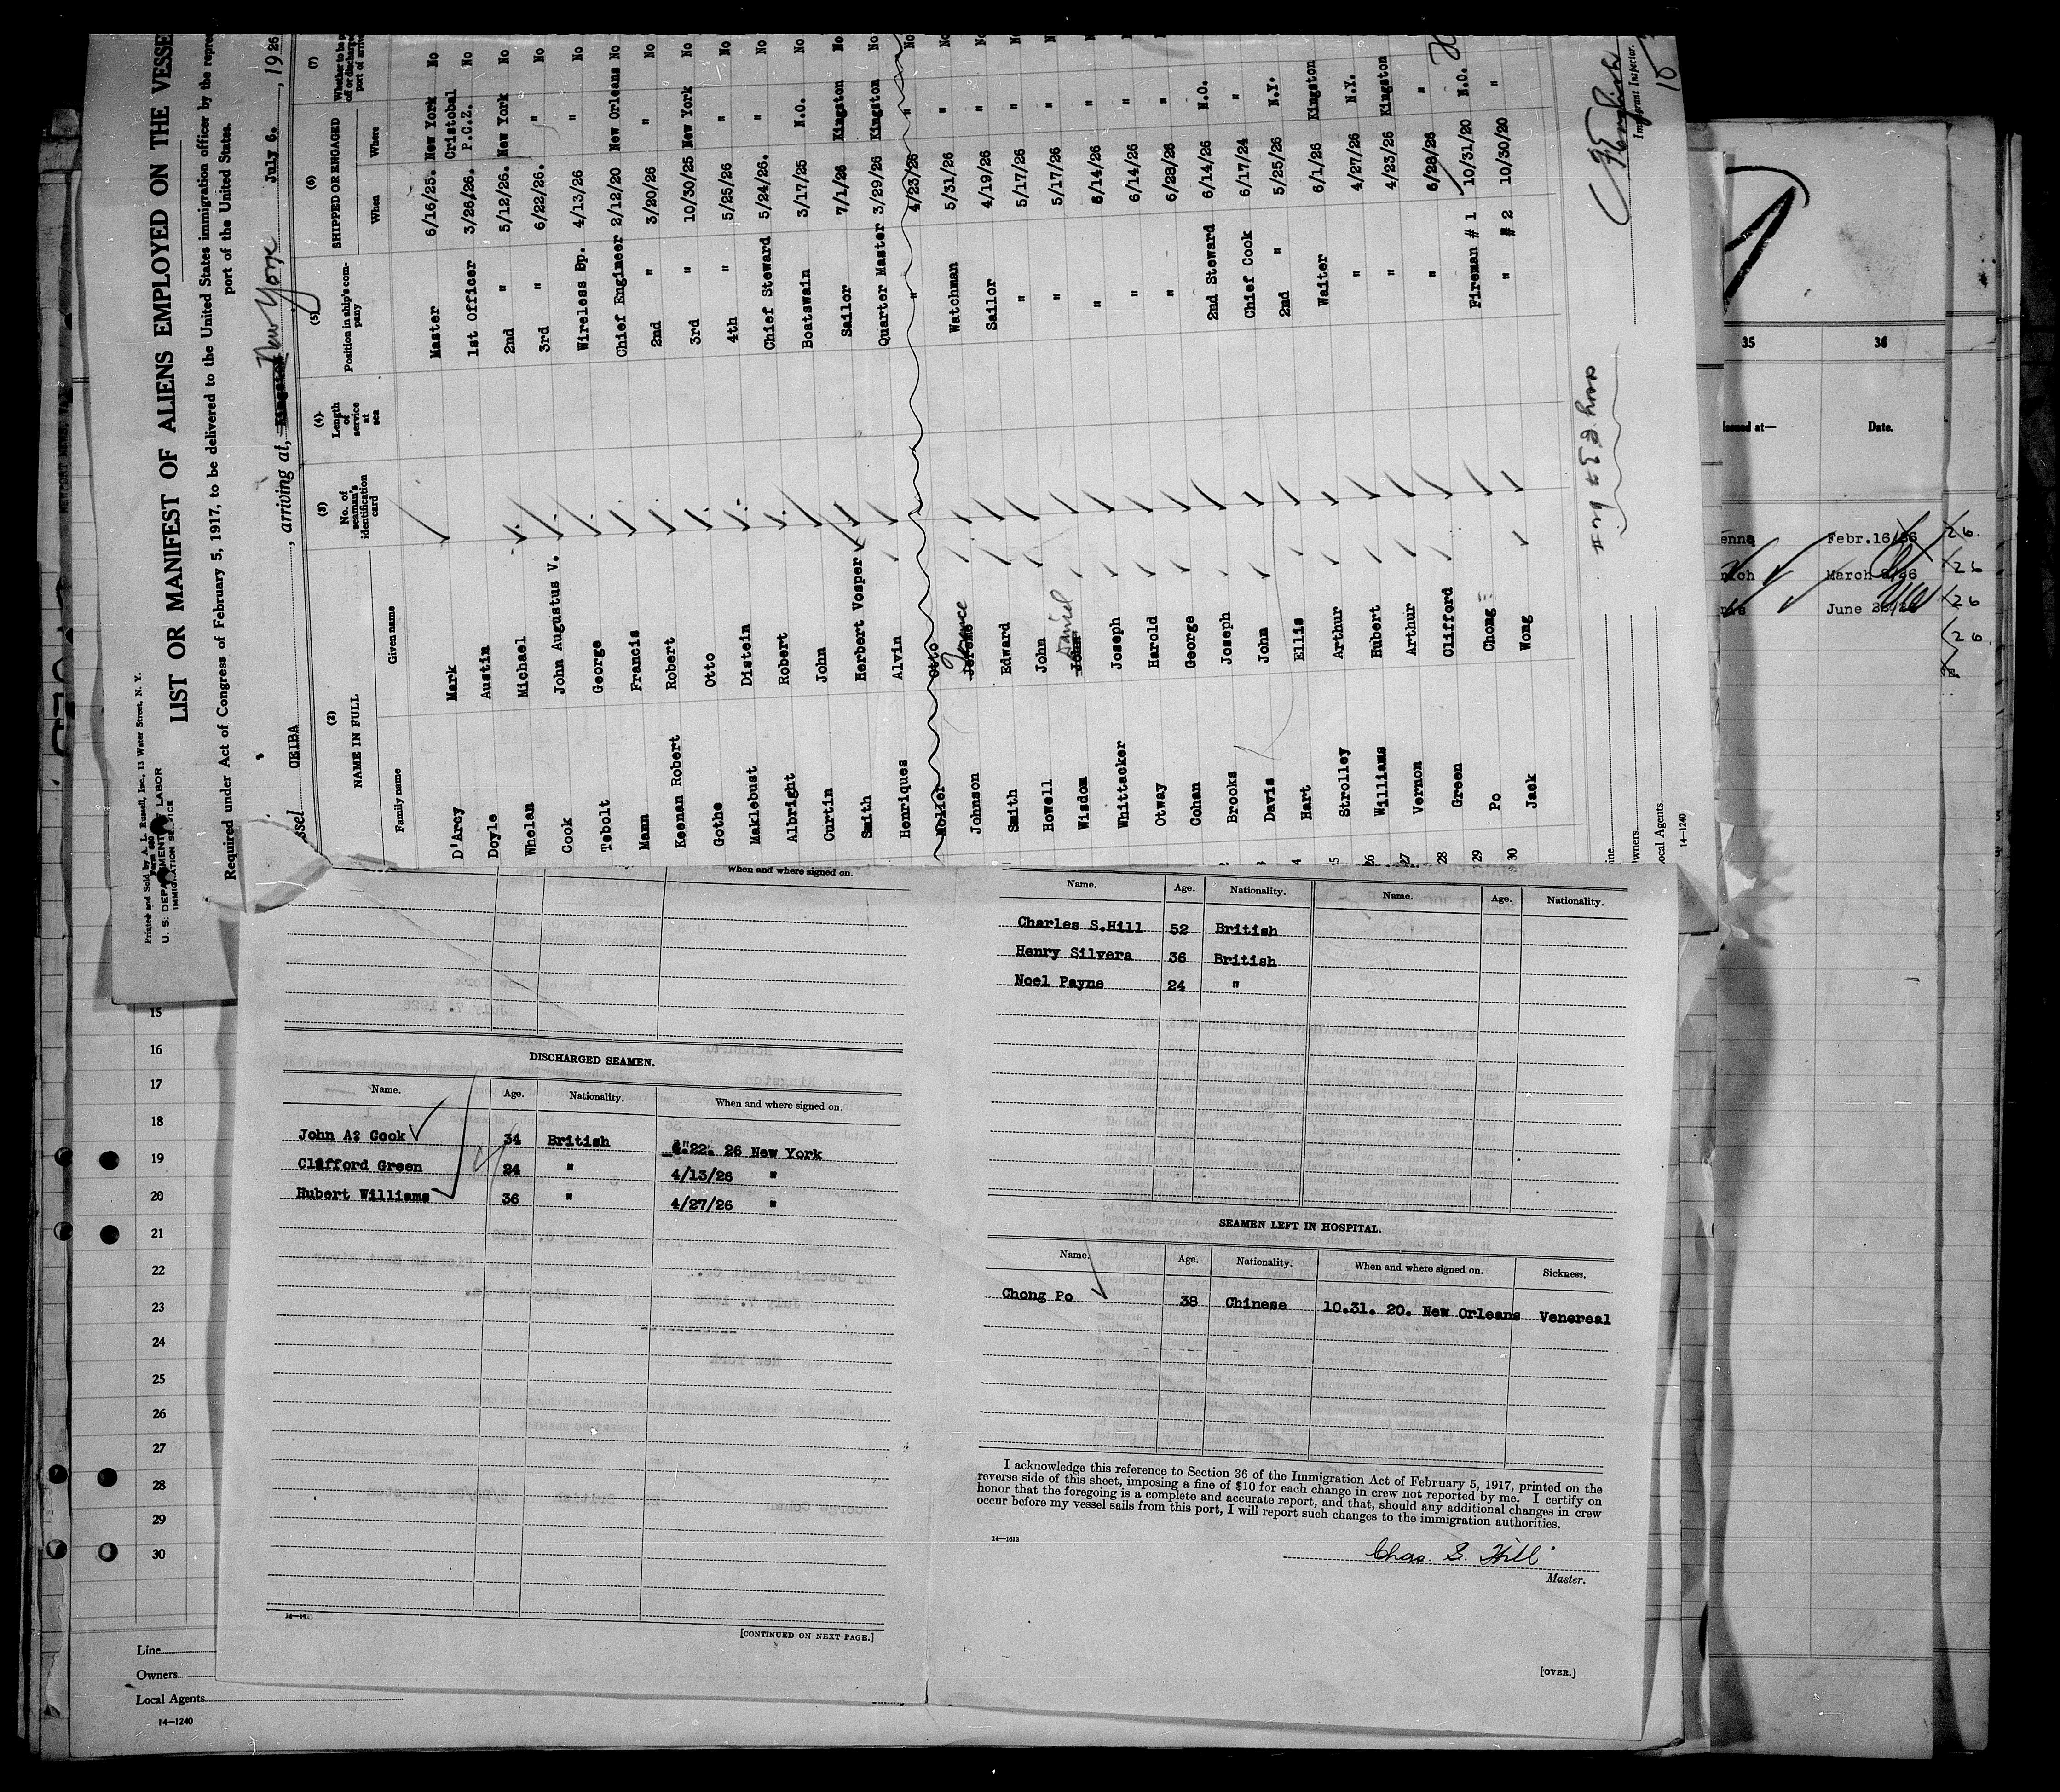 Printed and Sold by A. L. Russell, Inc., 13 Water Street, N. Y.
Form 680
U. S. DEPARTMENT OF LABOR
IMMIGRATION SERVICE
LIST OR MANIFEST OF ALIENS EMPLOYED ON THE VESSE
Required under Act of Congress of February 5, 1917, to be delivered to the United States immigration officer by the repre
port of the United States.
ssel CEIBA , arriving at, Kingston New York July 6. , 1926
(2) (3) (4) (5) (6) (7)
NAME IN FULL No. of seaman's identification card Length of service at sea Position in ship's company SHIPPED OR ENGAGED
Family name Given name When Where
D'Arcy Mark Master 6/16/25. New York No
Doyle Austin 1st Officer 3/26/26. Cristobal P.C.Z. No
Whelan Michael 2nd " 5/12/26. New York No
Cook John Augustus V. 3rd " 6/22/26. " No
Tebolt George Wireless Op. 4/13/26 " No
Mann Francis Chief Engineer 2/12/20 New Orleans No
Keenan Robert Robert 2nd " 3/20/26 " No
Gothe Otto 3rd " 10/30/25 New York No
Maklebust Distein 4th " 5/25/26 " No
Albright Robert Chief Steward 5/24/26. " No
Curtin John Boatswain 3/17/25 N.O. No
Smith Herbert Vosper Sailor 7/1/26 Kingston No
Henriques Alvin Quarter Master 3/29/26 Kingston No
Moller Otto " 4/23/26 " No
Johnson Jerome Watchman 5/31/26 " No
Smith Edward Sailor 4/19/26 " No
Howell John " 5/17/26 " No
Wisdom John Daniel " 5/17/26 " No
Whittacker Joseph " 6/14/26 " No
Otway Harold " 6/14/26 " No
Cohan George " 6/28/26 " No
Brooks Joseph 2nd Steward 6/14/26 N.O.
Davis John Chief Cook 6/17/24 "
4 Hart Ellis 2nd " 5/25/26 N.Y.
5 Strolley Arthur Waiter 6/1/26 Kingston
26 Williams Hubert " 4/27/26 N.Y.
27 Vernon Arthur " 4/23/26 Kingston
28 Green Clifford " 6/28/26 "
29 Po Chong Fireman # 1 10/31/20 N.O.
30 Jack Wong " # 2 10/30/20 "
Immigrant Inspector.
ine
wners
ocal Agents
14—1240
35 36
Issued at— Date.
enna Febr.16/26 26.
rich March 26
June 26
26.
When and where signed on.
DISCHARGED SEAMEN.
Name. Age. Nationality. When and where signed on.
John A? Cook 34 British 22. 26 New York
Clifford Green 24 " 4/13/26 "
Hubert Williams 36 " 4/27/26 "
14—1613
[CONTINUED ON NEXT PAGE.]
Name. Age. Nationality. Name. Age. Nationality.
Charles S.Hill 52 British
Henry Silvera 36 British
Noel Payne 24 "
SEAMEN LEFT IN HOSPITAL.
Name. Age. Nationality. When and where signed on. Sickness.
Chong Po 38 Chinese 10.31. 20. New Orleans Venereal
I acknowledge this reference to Section 36 of the Immigration Act of February 5, 1917, printed on the
reverse side of this sheet, imposing a fine of $10 for each change in crew not reported by me. I certify on
honor that the foregoing is a complete and accurate report, and that, should any additional changes in crew
occur before my vessel sails from this port, I will report such changes to the immigration authorities.
14—1613
Chas. S. Hill
Master.
[OVER.]
15
16
17
18
19
20
21
22
23
24
25
26
27
28
29
30
Line
Owners
Local Agents
14—1240